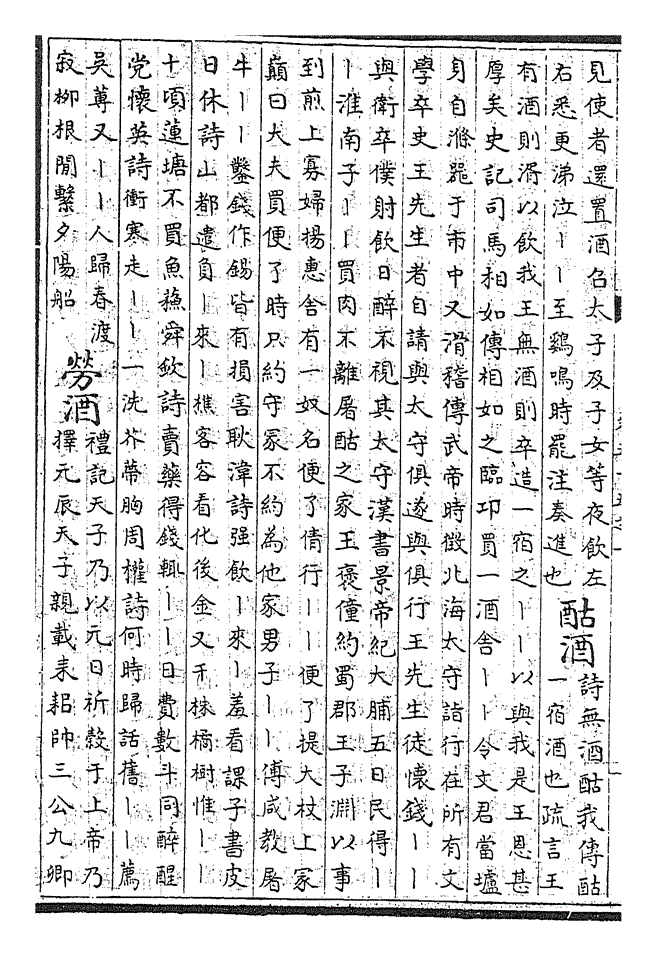 見使者還置酒召太子及子女等夜飲左
右悉更涕泣丨丨至鷄鳴時罷注奏進也
酤酒
詩無酒酤我傳酤
一宿酒也疏言王
有酒則湑以飲我王無酒則卒造一宿之丨丨以與我是王恩甚
厚矣史記司馬相如傳相如之臨邛買一酒舍丨丨令文君當壚
身自滌器于市中又滑稽傳武帝時徵北海太守詣行在所有文
學卒史王先生者自請與太守俱遂與俱行王先生徒懷錢丨丨
與衛卒僕射飲日醉不視其太守漢書景帝紀大脯五日民得丨
丨淮南子丨丨買肉不離屠酤之家王褒僮約蜀郡王子淵以事
到煎上寡婦揚惠舍有一奴名便了倩行丨丨便了提大杖上冢
巔曰大夫買便了時只約守冢不約為他家男子丨丨傅咸教屠
牛丨丨鑿錢作錫皆有損害耿湋詩强飲丨來丨羞看課子書皮
日休詩山都遣負丨來丨樵客容看化後金又千株橘樹惟丨丨
十頃蓮塘不買魚蘓舜欽詩賣藥得錢輒丨丨日費數斗同醉醒
党懷英詩衝寒走丨丨一洗芥蔕胸周權詩何時歸話舊丨丨薦
吳蓴又丨丨人歸春渡
寂柳根閒繫夕陽船
勞酒
禮記天子乃以元日祈穀于上帝乃
擇元辰天子親載耒耜帥三公九卿